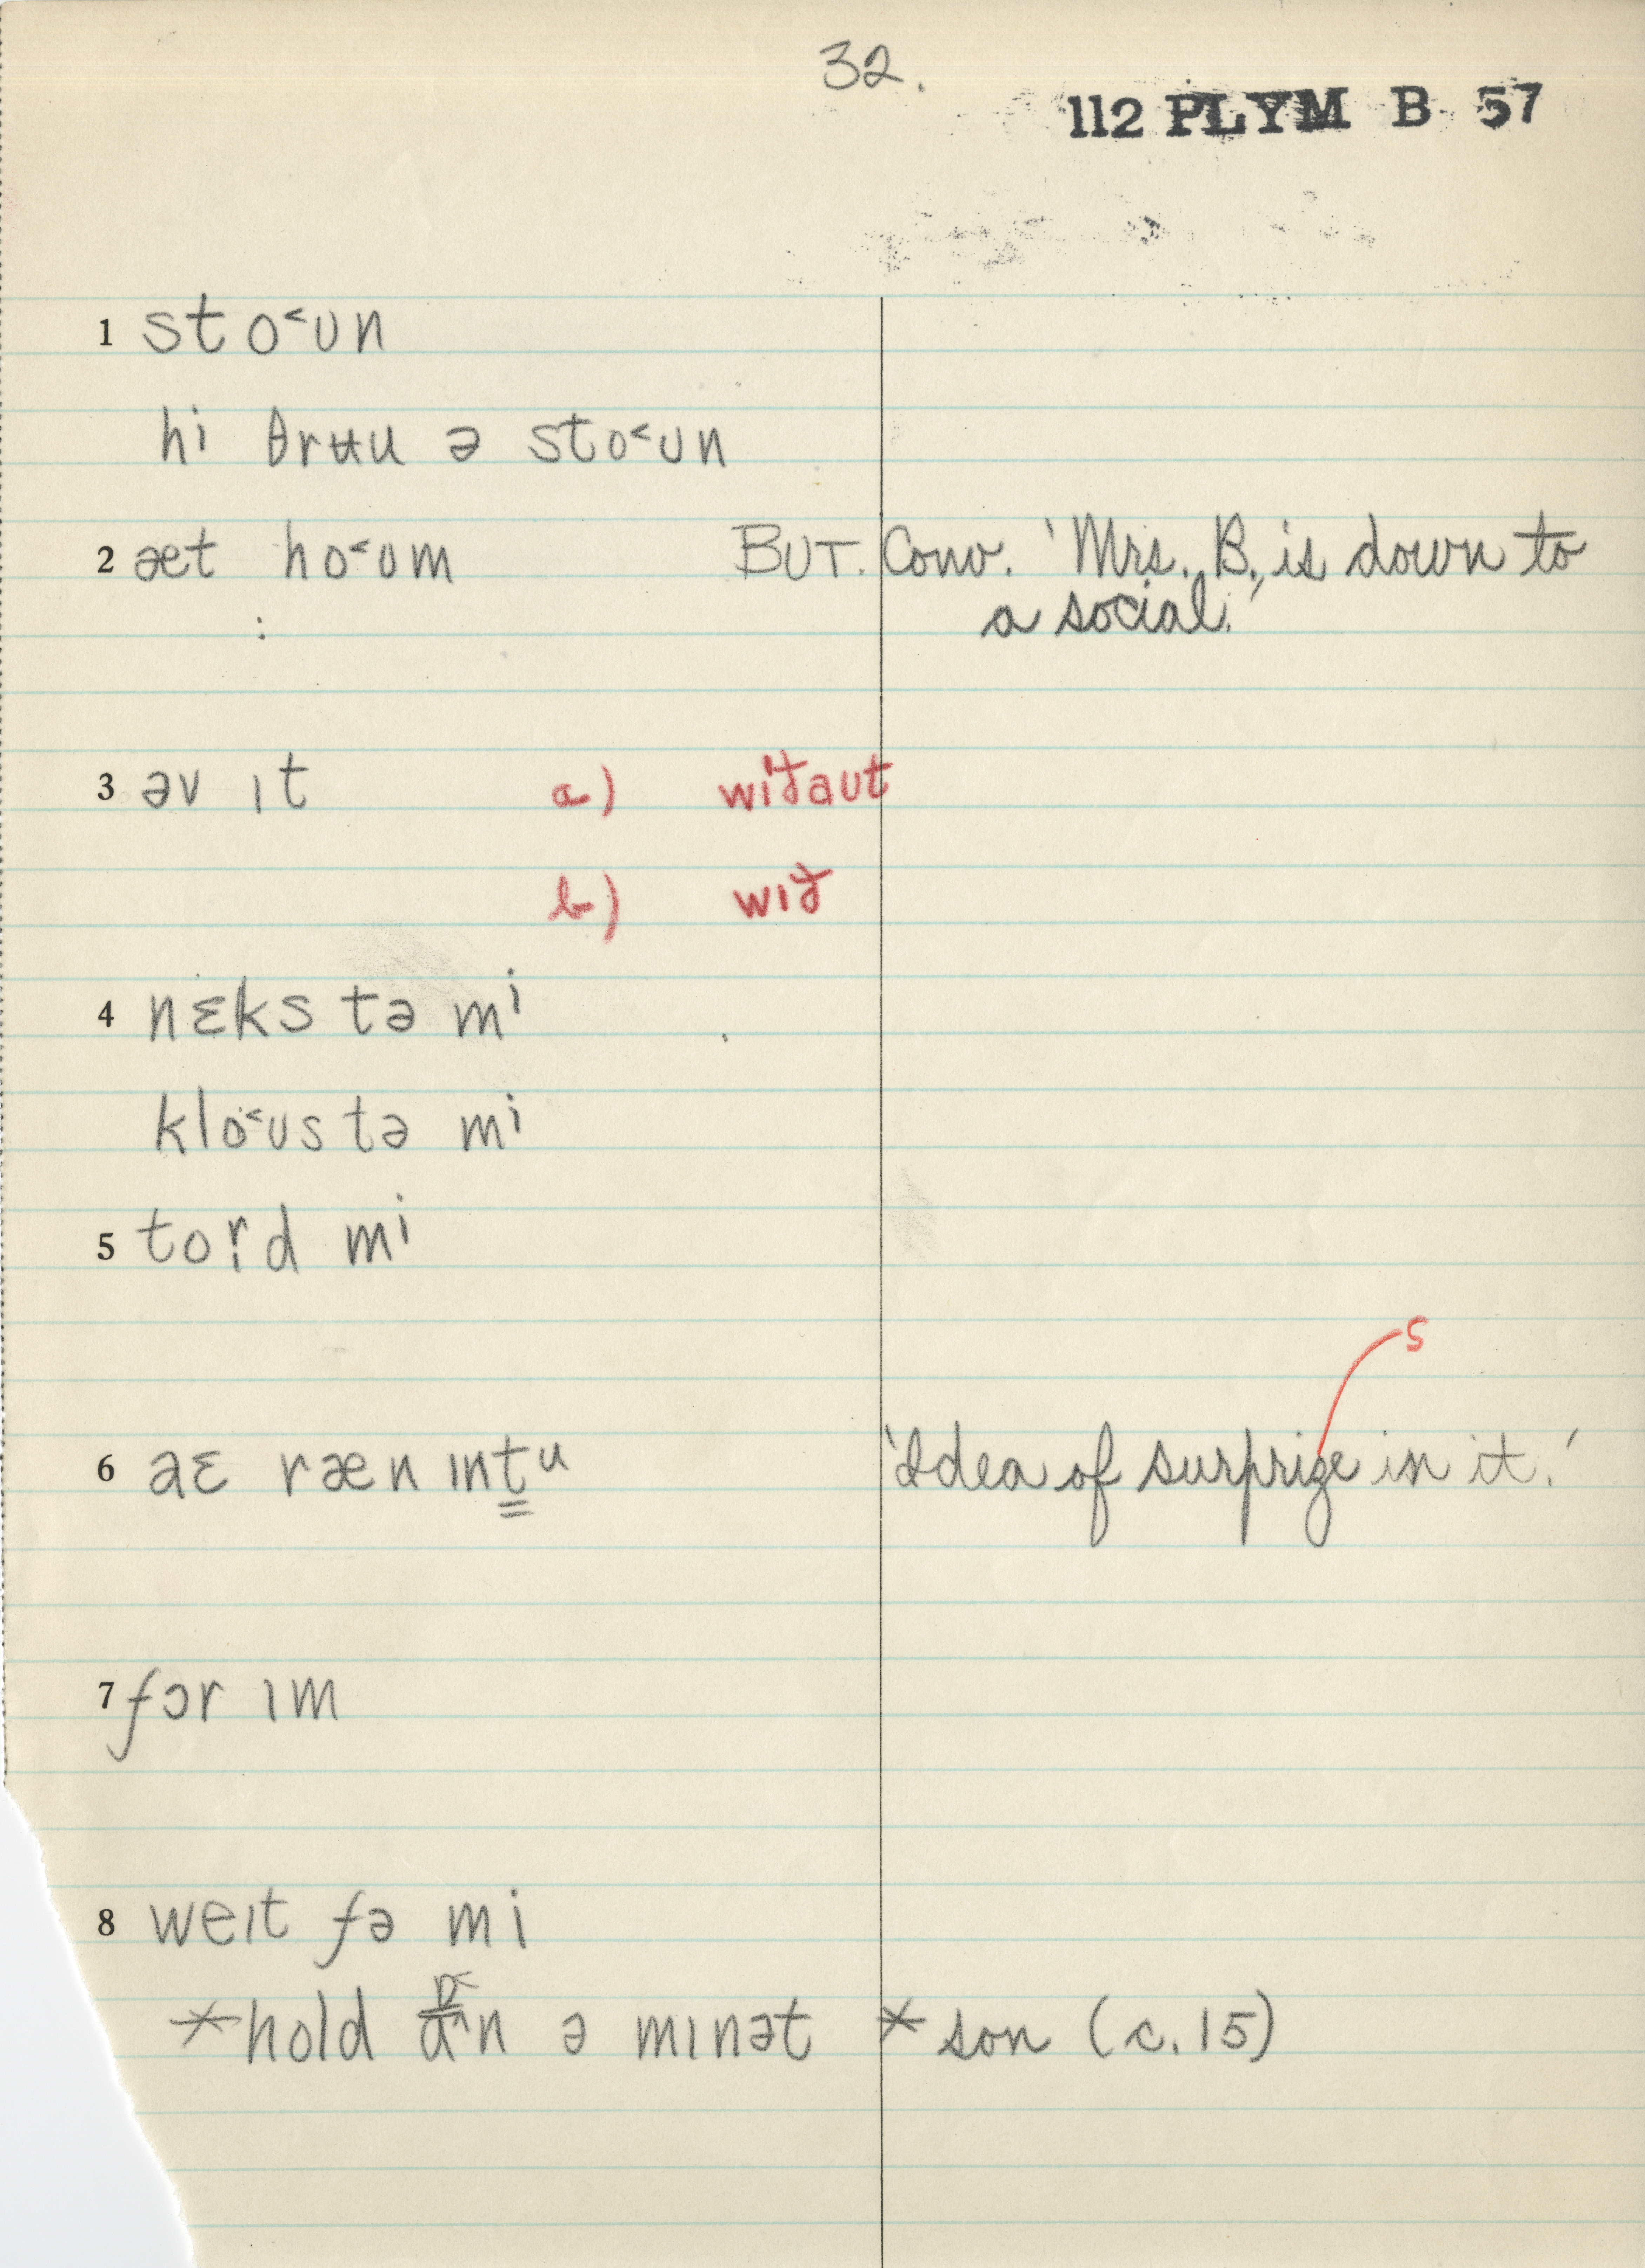 32.
112 PLYM B 57
1 sto˂ʊn
hi θrʉu ə sto˂ʊn
2 æt ho˂ʊm BUT. Conv. 'Mrs. B., is down to
a social.'
3 əv ɪt a) wɪðaʊt
b) wɪð
4 nɛks tə mi
klo˂ʊs tə mi
5 tord mi
s
6 aɛ ræn ɪntu 'Idea of surprize in it.'
7 fɔr ɪm
8 weɪt fə mi
*hold ɒ˂n ə mɪnət * son (c. 15)